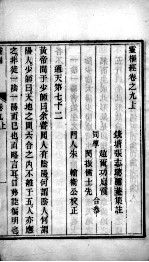 靈樞經卷之九上
錢塘張志聰隱菴集註
同學
合參
閔振儒士先
門人朱輪衛公校正
通天第七十二
黃帝問于少師曰余嘗聞人有陰陽何謂陰人何謂
陽人少師曰天地之間六合之內不離于五人亦應
之非徒一陰一陽而已也而略言耳口弗能徧明也